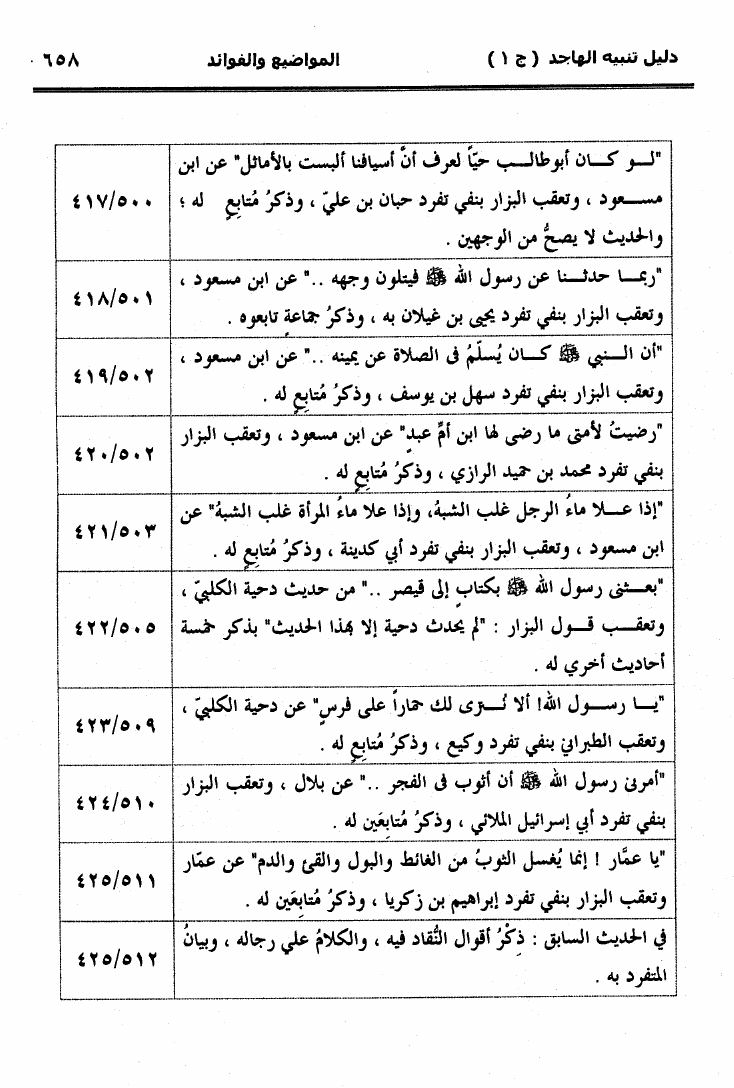 دليل تنبيه الهاجد ( ج ١ ) المواضيع والفوائد ٦٥٨
"لو كان أبو طالب حيّاً لعرف أنَّ أسيافنا ألبست بالأماثل" عن ابن
مسعود ، وتعقب البزار بنفي تفرد حبان بن عليّ ، وذكرُ مُتابِعٍ له ؛
والحديث لا يصحُّ من الوجهين .
٤١٧/٥٠٠
"ربما حدثنا عن رسول الله ﷺ فيتلون وجهه .." عن ابن مسعود ،
وتعقب البزار بنفي تفرد يحيى بن غيلان به ، وذكرُ جماعةٍ تابعوه .
٤١٨/٥٠١
"أن النبي ﷺ كان يُسلِّمُ فى الصلاة عن يمينه .." عن ابن مسعود ،
وتعقب البزار بنفي تفرد سهل بن يوسف ، وذكرُ مُتابِعٍ له .
٤١٩/٥٠٢
"رضيتُ لأمتى ما رضى لها ابن أمِّ عبدٍ" عن ابن مسعود ، وتعقب البزار
بنفي تفرد محمد بن حميد الرازي ، وذكرُ مُتابِعٍ له .
٤٢٠/٥٠٢
"إذا علا ماءُ الرجل غلب الشبهُ، وإذا علا ماءُ المرأة غلب الشبهُ" عن
ابن مسعود ، وتعقب البزار بنفي تفرد أبي كدينة ، وذكرُ مُتابِعٍ له .
٤٢١/٥٠٣
"بعثنى رسول الله ﷺ بكتابٍ إلى قيصر .." من حديث دحية الكلبيّ ،
وتعقب قول البزار : "لم يحدث دحية إلا بهذا الحديث" بذكر خمسة
أحاديث أخري له .
٤٢٢/٥٠٥
"يا رسول الله! ألا نُنزى لك حماراً على فرسٍ" عن دحية الكلبيّ ،
وتعقب الطبراني بنفي تفرد وكيع ، وذكرُ مُتابِعٍ له .
٤٢٣/٥٠٩
"أمرنى رسول الله ﷺ أن أثوب فى الفجر .." عن بلال ، وتعقب البزار
بنفي تفرد أبي إسرائيل الملائي ، وذكرُ مُتابِعَين له .
٤٢٤/٥١٠
"يا عمَّار ! إنما يُغسل الثوبُ من الغائط والبول والقئ والدم" عن عمّار
وتعقب البزار بنفي تفرد إبراهيم بن زكريا ، وذكرُ مُتابِعَين له .
٤٢٥/٥١١
في الحديث السابق : ذِكْرُ أقوال النُّقاد فيه ، والكلامُ علي رجاله ، وبيانُ
المتفرد به .
٤٢٥/٥١٢